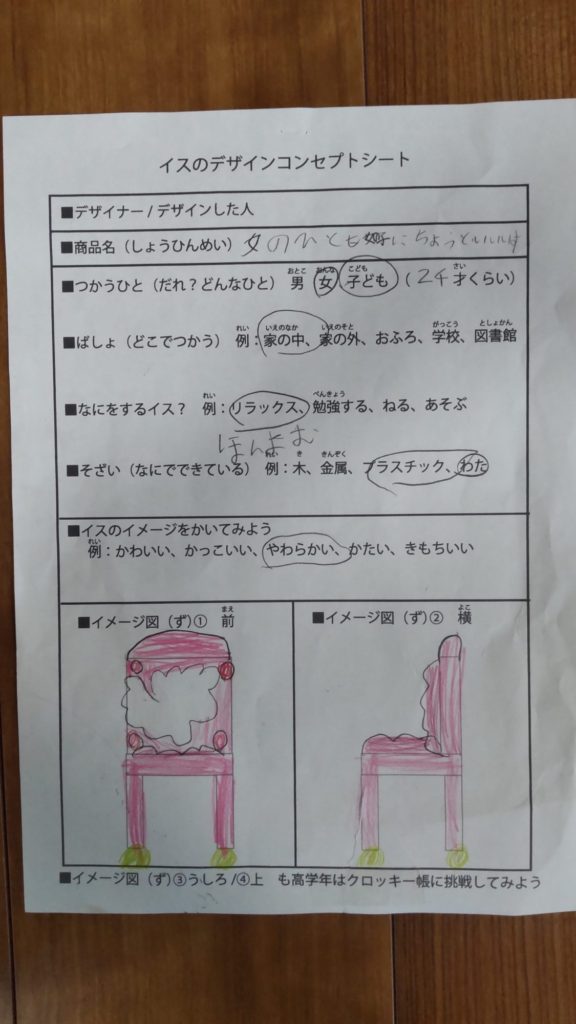 イスのデザインコンセプトシート
■デザイナー / デザインした人
■商品名（しょうひんめい） 女のひとも に ちょうど
■つかうひと（だれ？どんなひと） 男 女 子ども （ 24 才くらい）
■ばしょ（どこでつかう） 例：家の中、家の外、おふろ、学校、図書館
■なにをするイス？ 例：リラックス、勉強する、ねる、あそぶ
ほんよむ
■そざい（なにでできている） 例：木、金属、プラスチック、わた
■イスのイメージをかいてみよう
例：かわいい、かっこいい、やわらかい、かたい、きもちいい
■イメージ図（ず）① 前
■イメージ図（ず）② 横
■イメージ図（ず）③うしろ /④上 も高学年はクロッキー帳に挑戦してみよう